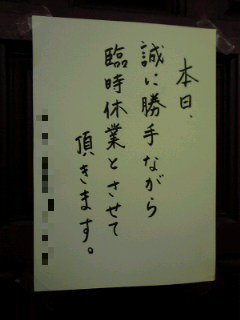 本日、
誠に勝手ながら
臨時休業とさせて
頂きます。